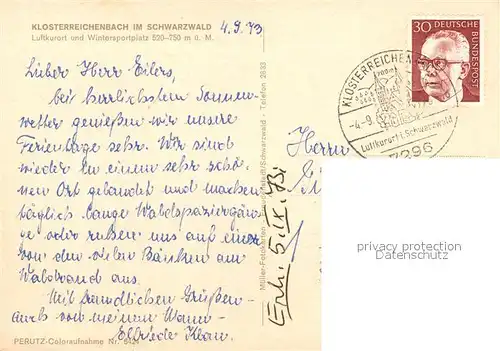 KLOSTERREICHENBACH IM SCHWARZWALD
Luftkurort und Wintersportplatz 520-750 m ü. M.
4.9.73
Lieber Herr Eilers,
bei herrlichstem Sonnen-
wetter genießen wir unsere
Ferientage sehr. Wir sind
wieder in einem sehr schö-
nen Ort gelandet und machen
täglich lange Waldspaziergän-
ge oder ruhen uns auf einer
von den vielen Bänken am
Waldrand aus.
Mit freundlichen Grüßen -
auch von meinem Mann -
Elfriede
PERUTZ-Coloraufnahme Nr.
Müller-Fotokarten Schwarzwald - Telefon 2633
Erh. 5.IX.73
Herrn
30 DEUTSCHE
BUNDESPOST
KLOSTERREICHENBACH
-4.-9.
Luftkurort i. Schwarzwald
7296
privacy protection
Datenschutz